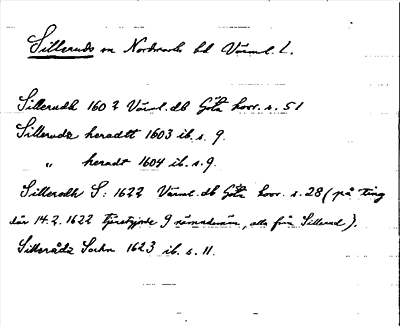 Silleruds sn Nordmarks hd Värml. l.
Sillerudh 1602 Värml. db Göta hovr. s. 51
Sillerudz heradtt 1603 ib. s. 9.
" heradt 1604 ib. s. 9.
Sillerodh S: 1622 Värml. db Göta hovr. s. 28 (på ting
där 14.2. 1622 tjänstgjorde 9 nämndemän, alla från Sillerud).
Sillerådz Sochn 1623 ib. s. 11.